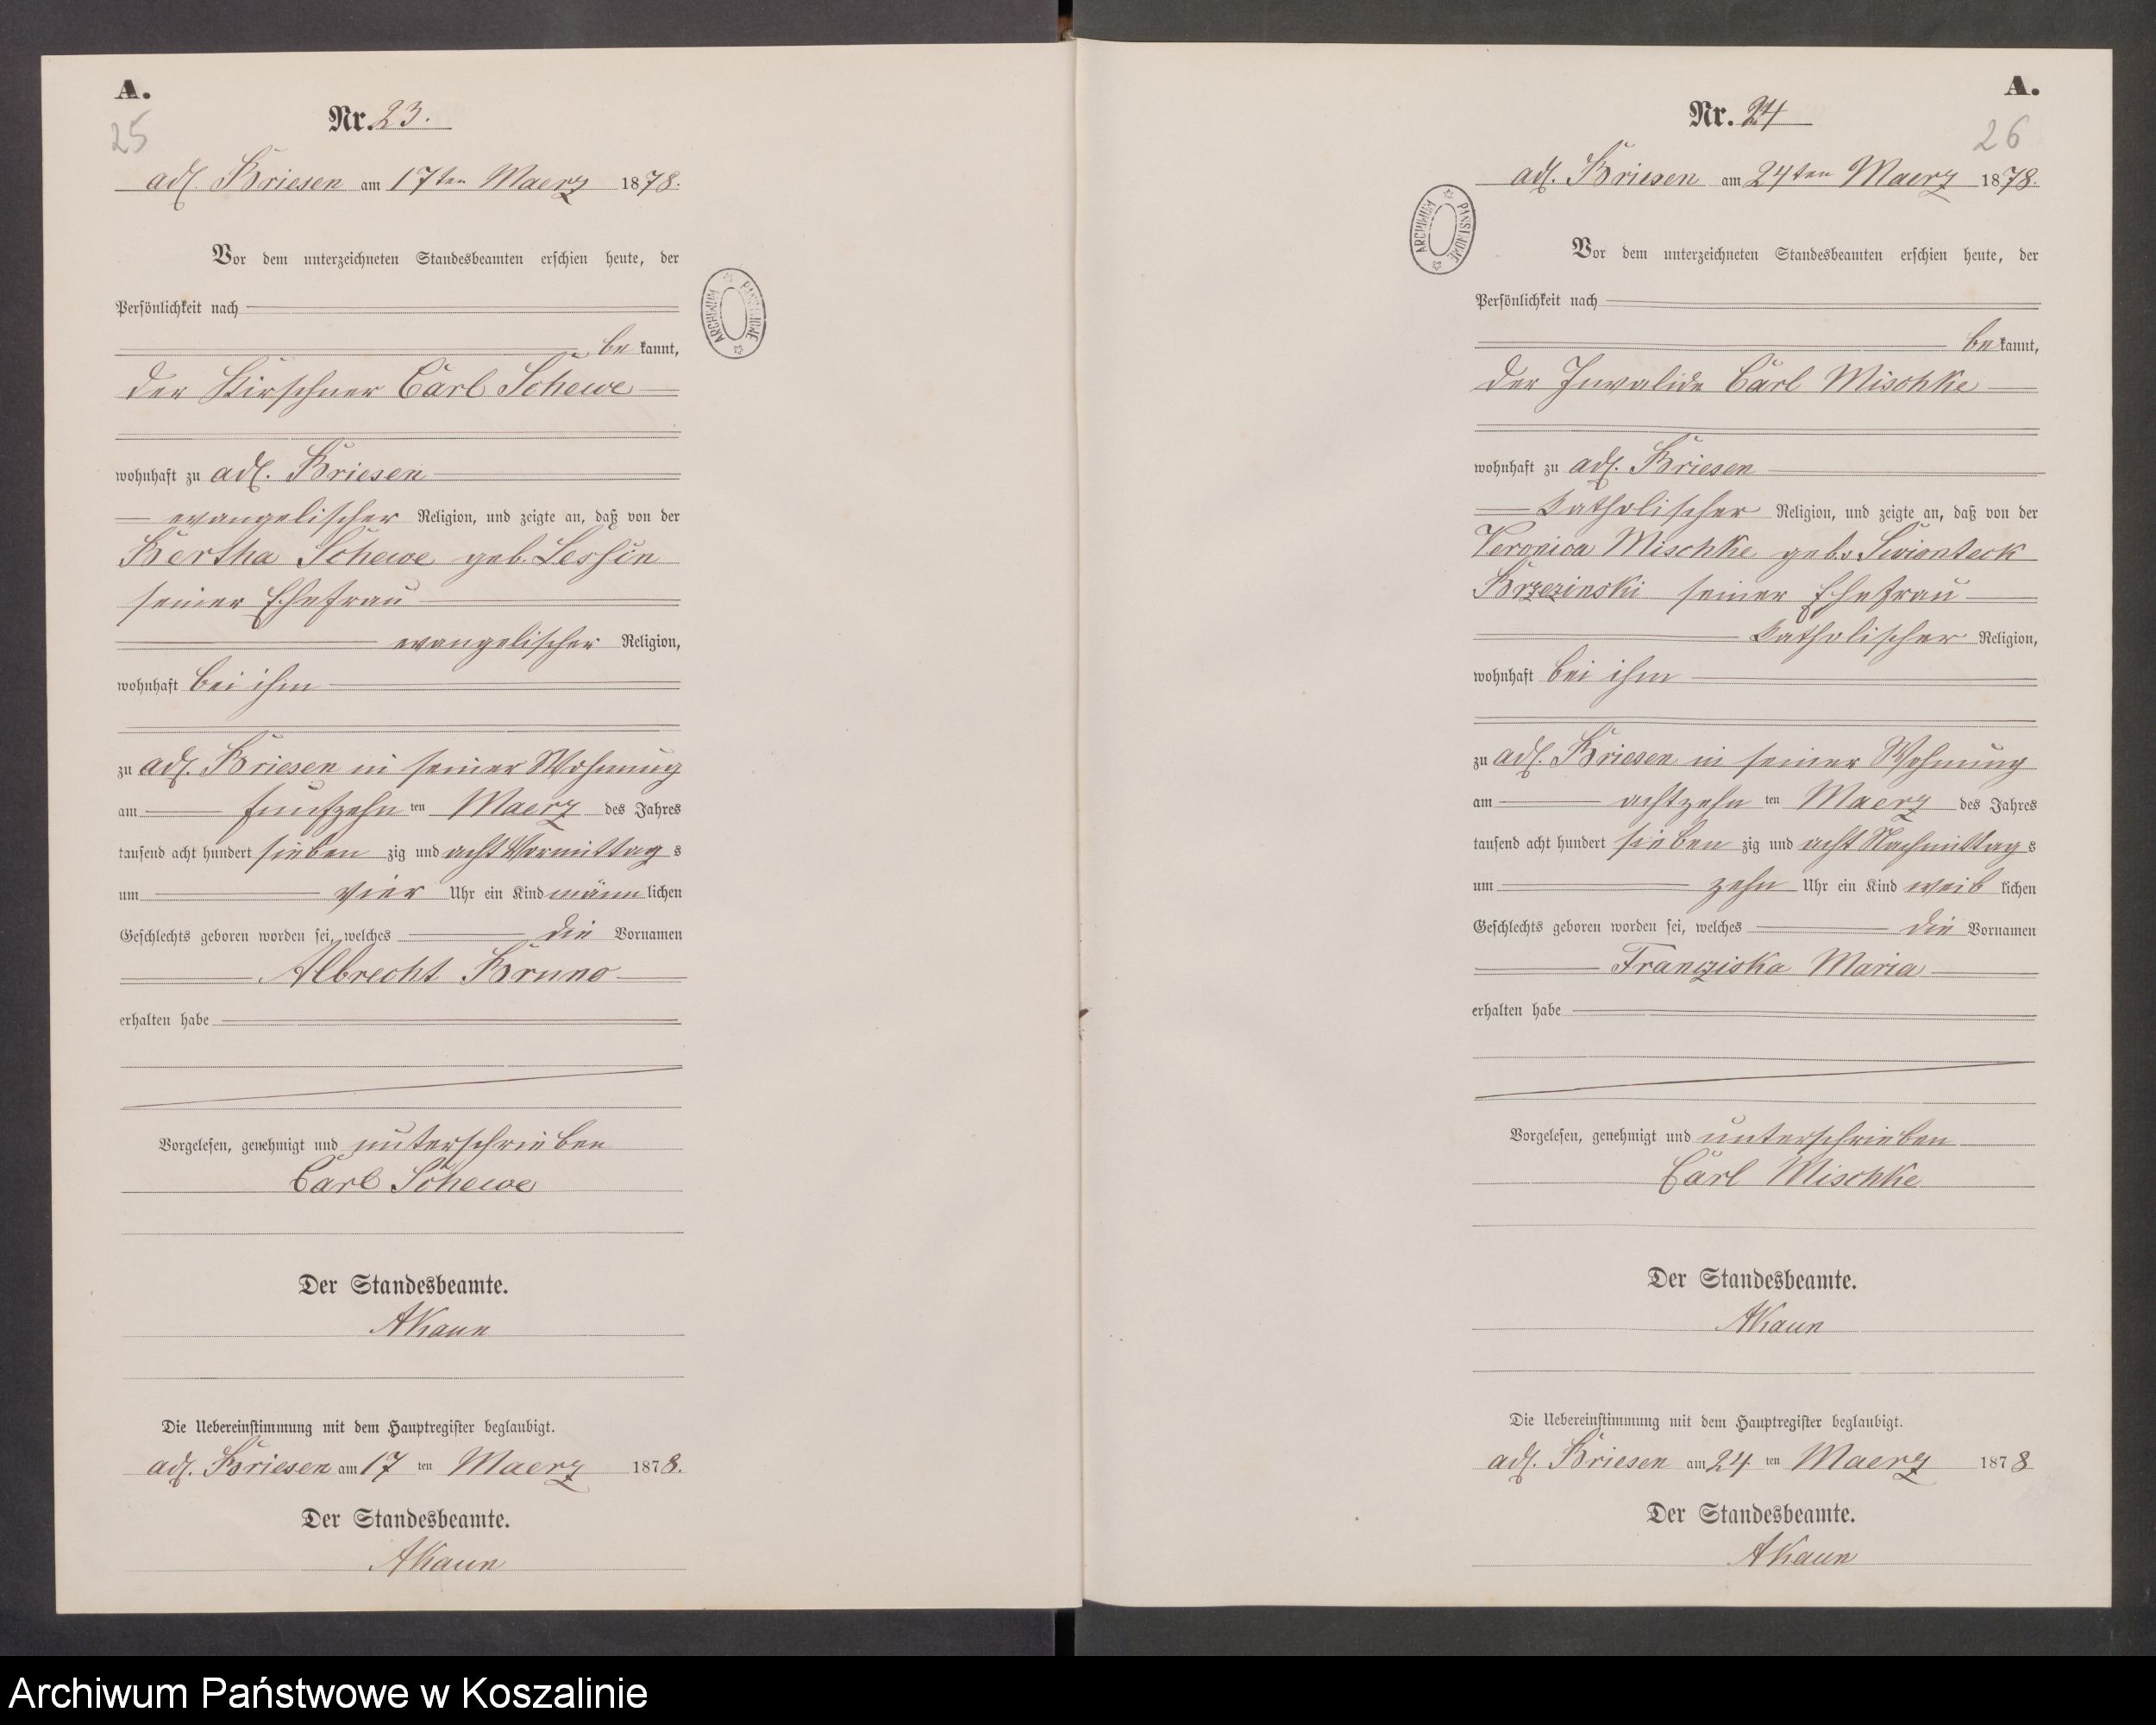 A.
25
Nr. 23.
adl. Briesen am 17ten Maerz 1878.
Vor dem unterzeichneten Standesbeamten erschien heute, der
Persönlichkeit nach
be kannt,
der Kirschner Carl Schewe
wohnhaft zu adl. Briesen
evangelischer Religion, und zeigte an, daß von der
Bertha Schewe geb. Lessin
seiner Ehefrau
evangelischer Religion,
wohnhaft bei ihm
zu adl. Briesen in seiner Wohnung
am funfzehn ten Maerz des Jahres
tausend acht hundert sieben zig und acht Vormittag s
um vier Uhr ein Kind männ lichen
Geschlechts geboren worden sei, welches die Vornamen
Albrecht Bruno
erhalten habe
Vorgelesen, genehmigt und unterschrieben
Carl Schewe
Der Standesbeamte.
AKaun
Die Uebereinstimmung mit dem Hauptregister beglaubigt.
adl. Briesen am 17 ten Maerz 1878.
Der Standesbeamte.
AKaun
ARCHIWUM PAŃSTWOWE
A.
26
Nr. 24
adl. Briesen am 24ten Maerz 1878.
Vor dem unterzeichneten Standesbeamten erschien heute, der
Persönlichkeit nach
be kannt,
der Invalide Carl Mischke
wohnhaft zu adl. Briesen
katholischer Religion, und zeigte an, daß von der
Veronica Mischke geb. v. Swionteck
Brzezinski seiner Ehefrau
katholischer Religion,
wohnhaft bei ihm
zu adl. Briesen in seiner Wohnung
am achtzehn ten Maerz des Jahres
tausend acht hundert sieben zig und acht Nachmittag s
um zehn Uhr ein Kind weib lichen
Geschlechts geboren worden sei, welches die Vornamen
Franziska Maria
erhalten habe
Vorgelesen, genehmigt und unterschrieben
Carl Mischke
Der Standesbeamte.
AKaun
Die Uebereinstimmung mit dem Hauptregister beglaubigt.
adl. Briesen am 24 ten Maerz 1878
Der Standesbeamte.
AKaun
ARCHIWUM PAŃSTWOWE
Archiwum Państwowe w Koszalinie